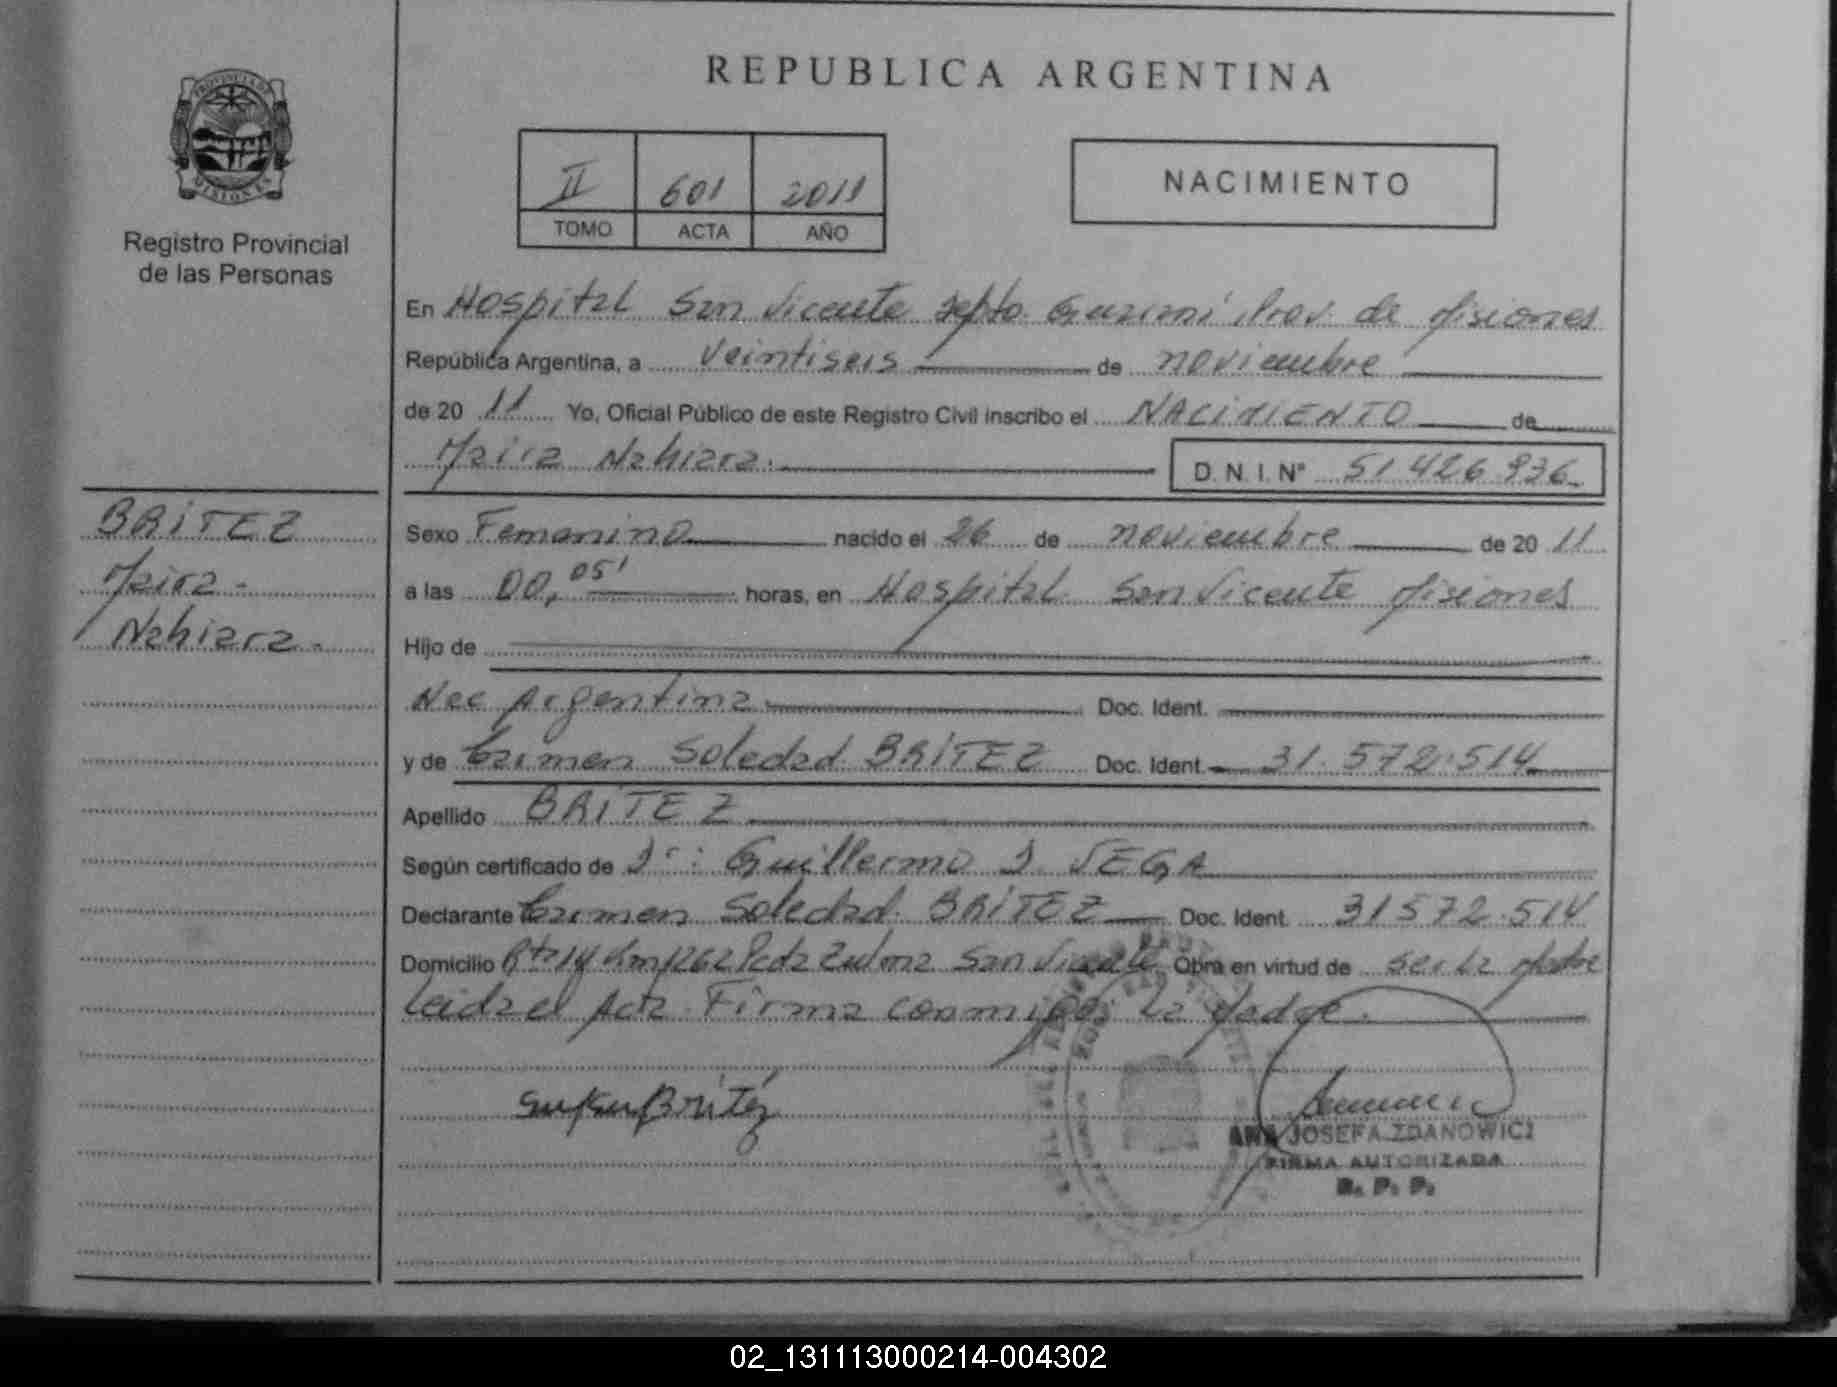 REPUBLICA ARGENTINA
PROVINCIA DE
MISIONES
Registro Provincial
de las Personas
II 601 2011
TOMO ACTA AÑO
NACIMIENTO
En Hospital San Vicente Depto. Guaraní Prov. de Misiones
República Argentina, a veintiseis de noviembre
de 2011 Yo, Oficial Público de este Registro Civil inscribo el NACIMIENTO de
Maira Nahiara. D.N.I. Nº 51 426 936
BRITEZ
Maira
Nahiara.
Sexo Femenino nacido el 26 de noviembre de 2011
a las 00,05' horas, en Hospital San Vicente Misiones
Hijo de
Nac Argentina Doc. Ident.
y de Carmen Soledad BRITEZ Doc. Ident. 31.572.514
Apellido BRITEZ
Según certificado de Dr: Guillermo D VEGA
Declarante Carmen Soledad BRITEZ Doc. Ident. 31572.514
Domicilio Rta 14 Km 1262 Pcda Zulma San Vicente Obra en virtud de ser la Madre
Leida el Acta Firma conmigo: la Madre.
Britéz
ANA JOSEFA ZDANOWICZ
FIRMA AUTORIZADA
R. P. P.
02_131113000214-004302